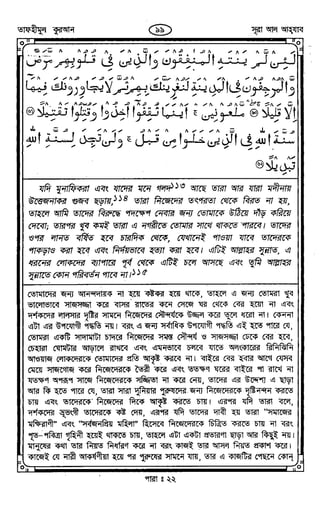 তাফহীমুল কুরআন
১৯
সূরা আল আহযাব
لَئِنْ لَّمْ يَنْتَهِ الْمُنٰفِقُوْنَ وَالَّذِيْنَ فِيْ قُلُوْبِهِمْ مَّرَضٌ
وَّالْمُرْجِفُوْنَ فِي الْمَدِيْنَةِ لَنُغْرِيَنَّكَ بِهِمْ ثُمَّ لَا يُجَاوِرُوْنَكَ فِيْهَا
اِلَّا قَلِيْلًا ۞ مَّلْعُوْنِيْنَ ۛ اَيْنَمَا ثُقِفُوْا اُخِذُوْا وَقُتِّلُوْا تَقْتِيْلًا ۞
سُنَّةَ اللهِ فِي الَّذِيْنَ خَلَوْا مِنْ قَبْلُ ۚ وَلَنْ تَجِدَ لِسُنَّةِ اللهِ
تَبْدِيْلًا ۞
যদি মুনাফিকরা এবং যাদের মনে গলদ১১৩ আছে তারা আর যারা মদীনায়
উত্তেজনাকর গুজব ছড়ায়,১১৪ তারা নিজেদের তৎপরতা থেকে বিরত না হয়,
তাহলে আমি তাদের বিরুদ্ধে পদক্ষেপ নেবার জন্য তোমাকে উঠিয়ে দাঁড় করিয়ে
দেবো; তারপর খুব কমই তারা এ নগরীতে তোমার সাথে থাকতে পারবে। তাদের
ওপর লানত বর্ষিত হবে চারদিক থেকে, যেখানেই পাওয়া যাবে তাদেরকে
পাকড়াও করা হবে এবং নির্দয়ভাবে হত্যা করা হবে। এটিই আল্লাহর সুন্নাত, এ
ধরনের লোকদের ব্যাপারে পূর্ব থেকে এটিই চলে আসছে এবং তুমি আল্লাহর
সুন্নাতে কোন পরিবর্তন পাবে না।১১৫
তোমাদের জন্য আনন্দদায়ক না হয়ে কষ্টকর হয়ে থাকে, তাহলে এ জন্য তোমরা খুব
ভালোভাবে সাজসজ্জা করে বাসর রাতের কনে সেজে ঘর থেকে বের হয়ো না এবং
দর্শকদের লালসার দৃষ্টির সামনে নিজেদের সৌন্দর্যকে উজ্জল করে তুলে ধরো না। কেননা
এটা এর উপযোগী পদ্ধতি নয়। বরং এ জন্য সর্বাধিক উপযোগী পদ্ধতি এই হতে পারে যে,
তোমরা একটি সাদামাটা চাদরে নিজেদের সমস্ত সৌন্দর্য ও সাজসজ্জা ঢেকে বের হবে,
চেহারা ঘোমটার আড়ালে রাখবে এবং এমনভাবে চলবে যাতে অলংকারের রিনিঝিনি
আওয়াজ লোকদেরকে তোমাদের প্রতি আকৃষ্ট করবে না। বাইরে বের হবার আগে যেসব
মেয়ে সাজগোজ করে নিজেদেরকে তৈরী করে এবং ততক্ষণ ঘরের বাইরে পা রাখে না
যতক্ষণ অপরূপ সাজে নিজেদেরকে সজ্জিতা না করে নেয়, তাদের এর উদ্দেশ্য এ ছাড়া
আর কি হতে পারে যে, তারা সারা দুনিয়ার পুরুষদের জন্য নিজেদেরকে দৃষ্টিনন্দন করতে
চায় এবং তাদেরকে নিজেদের দিকে আকৃষ্ট করতে চায়। এরপর যদি তারা বলে,
দর্শকদের ভ্রূভংগী তাদেরকে কষ্ট দেয়, এরপর যদি তাদের দাবী হয় তারা "সমাজের
মক্ষিরাণী" এবং "সর্বজনপ্রিয় মহিলা" হিসেবে নিজেদেরকে চিত্রিত করতে চায় না বরং
পূত-পবিত্রা গৃহিনী হয়েই থাকতে চায়, তাহলে এটা একটা প্রতারণা ছাড়া আর কিছুই নয়।
মানুষের কথা তার নিয়ত নির্ধারণ করে না বরং কাজই তার আসল নিয়ত প্রকাশ করে।
কাজেই যে নারী আকর্ষণীয়া হয়ে পর পুরুষের সামনে যায়, তার এ কাজটির পেছনে কোন্
পারা : ২২